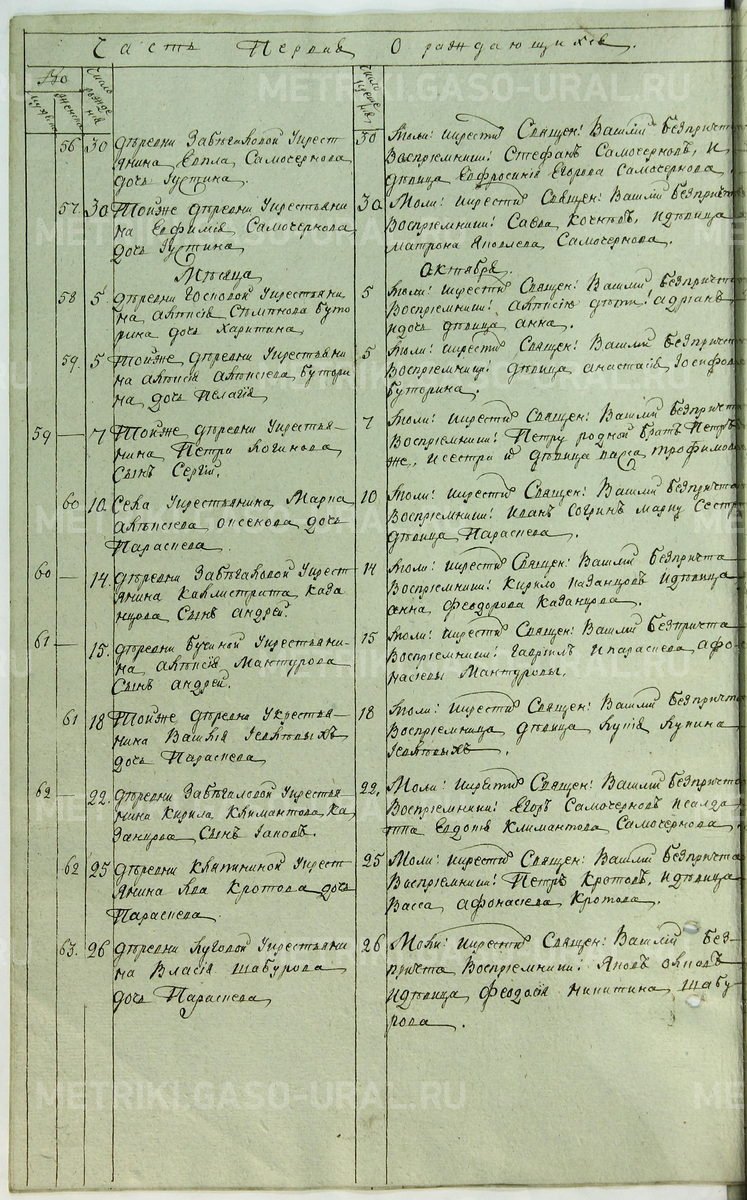 Часть Первая О раждающихся.
No
мужска
женска
Число рожденiя
Число крещенiя
56 30 деревни Забегаловой у крест
янина Карпа Самочернова
дочь Iустина.
30 Моли: и крести: Священ: Вашлiй безпричта
Воспрiемники: Стефанъ Самочерновъ, и
девица Евфросинiя Егорова Самочернова.
57 30 Тойже деревни у крестьяни
на Евфимiя Самочернова
дочь Iустина
30 Моли: и крести: Священ: Вашлiй безпричта
Воспрiемники: Савва Кочневъ, и девица
матрона Яковлева Самочернова.
Месяца Октября.
58 5 деревни Госповой у крестьяни
на алексiя Семенова Буто
рина дочь Харитина.
5 Моли: и крести: Священ: Вашлiй безпричта
Воспрiемники: алексiю дети: адрiанъ
и дочь девица анна.
59 5 Тойже деревни у крестьяни
на алексiя алексеева Бутори
на дочь Пелагiя
5 Моли: и крести: Священ: Вашлiй безпричта
Воспрiемница: девица анастасiя Iосифова
Буторина.
59 — 7 Тойже деревни у крестья-
нина Петра Логинова
Сынъ Сергiй.
7 Моли: и крести: Священ: Вашлiй безпричта
Воспрiемники: Петру родной братъ Петръ
же, и сестра девица васса трофимова
60 10 Села у крестьянина Марка
алексеева дочь
Параскева
10 Моли: и крести: Священ: Вашлiй безпричта
Воспрiемники: Иванъ Марку Сестра
девица Параскева.
60 — 14 деревни Забегаловой у крест
янина Каллистрата Каза
нцова Сынъ андрей.
14 Моли: и крести: Священ: Вашлiй безпричта
Воспрiемники: Кирило Казанцовъ и девица
анна феодорова Казанцова.
61 — 15 деревни Бучиной у крестьяни-
на алексiя Мантурова
Сынъ андрей.
15 Моли: и крести: Священ: Вашлiй безпричта
Воспрiемники: Гаврiилъ и параскева афо-
насьевы Мантуровы.
61 18 Тойже деревни у крестья-
нина Вашлiя
дочь Параскева
18 Моли: и крести: Священ: Вашлiй безпричта
Воспрiемница девица Лукина
62 — 22 деревни Забегаловой у крестья
нина Кирила Климантова Ка
занцова Сынъ Iаковъ.
22 Моли: и крести: Священ: Вашлiй безпричта
Воспрiемники: Егоръ Самочерновъ и салда
тка Евдокiя Климантова Самочернова
62 25 деревни Кляпининой у крест
янина Льва Кротова дочь
Параскева
25 Моли: и крести: Священ: Вашлiй безпричта
Воспрiемники: Петръ Кротовъ, и девица
Васса афонасьева Кротова.
63 26 деревни Луговой у крестьяни
на Власiя Шабурова
дочь Параскева
26 Моли: и крести: Священ: Вашлiй без-
причта Воспрiемники: Яковъ
и девица феодосiя никитина Шабу-
рова.
METRIKI.GASO-URAL.RU